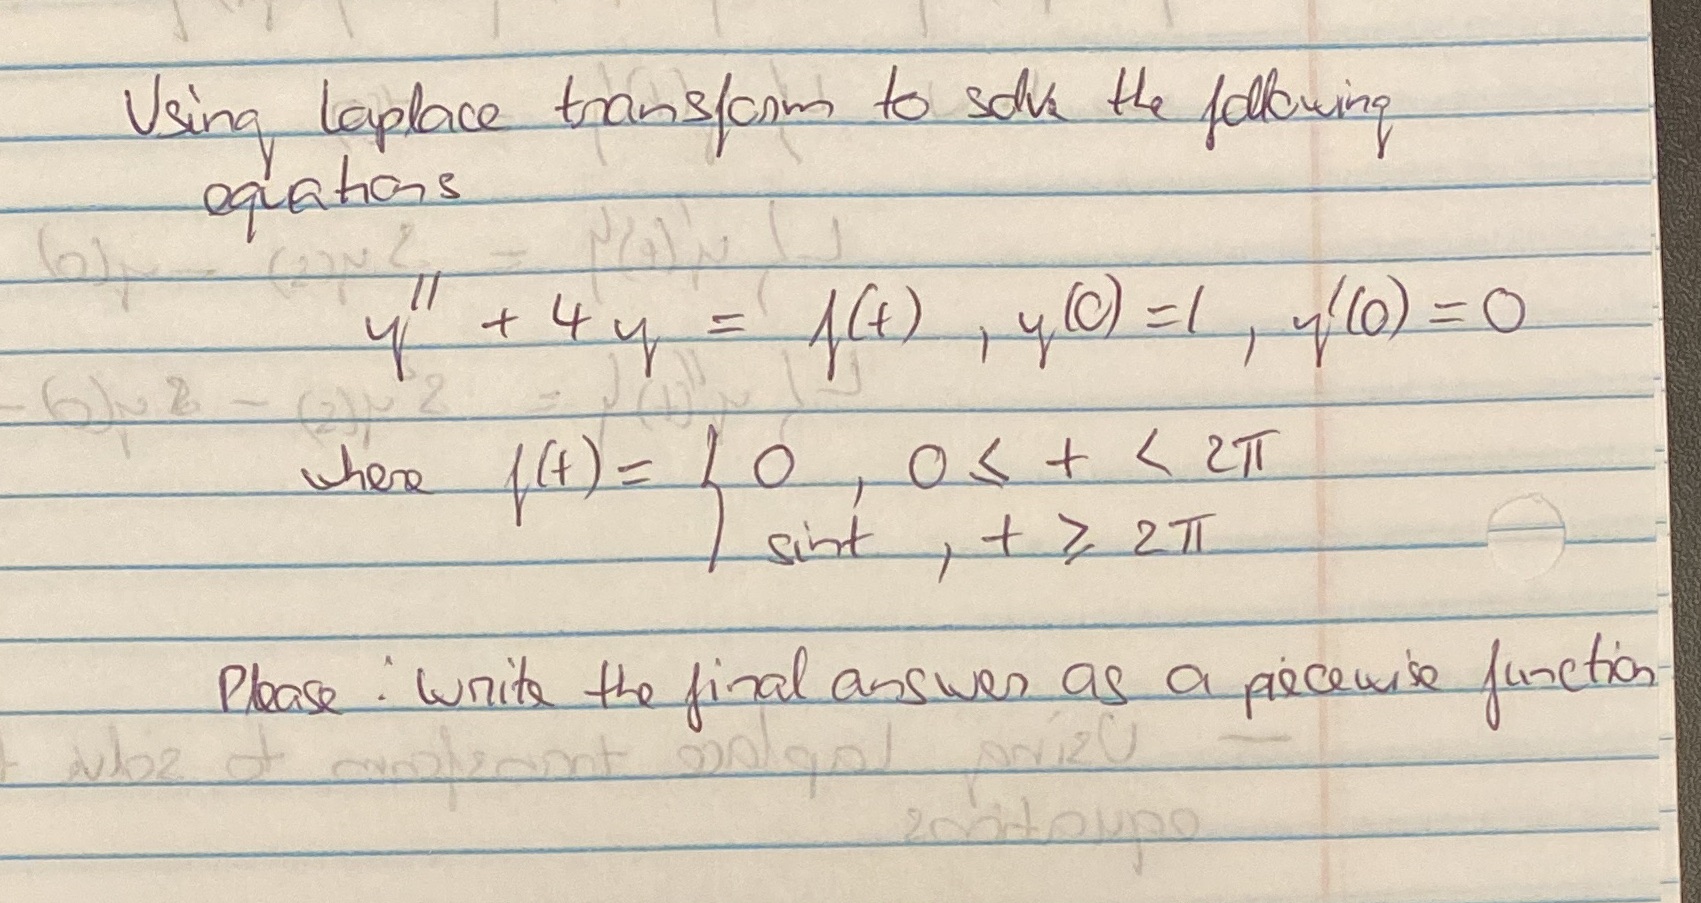 Using Laplace transform to solve the following
equations
y'' + 4y = f(t) , y(0) = 1 , y'(0) = 0
where f(t) = { 0 , 0 ≤ t < 2π
sint , t ≥ 2π
Please : write the final answer as a piecewise function